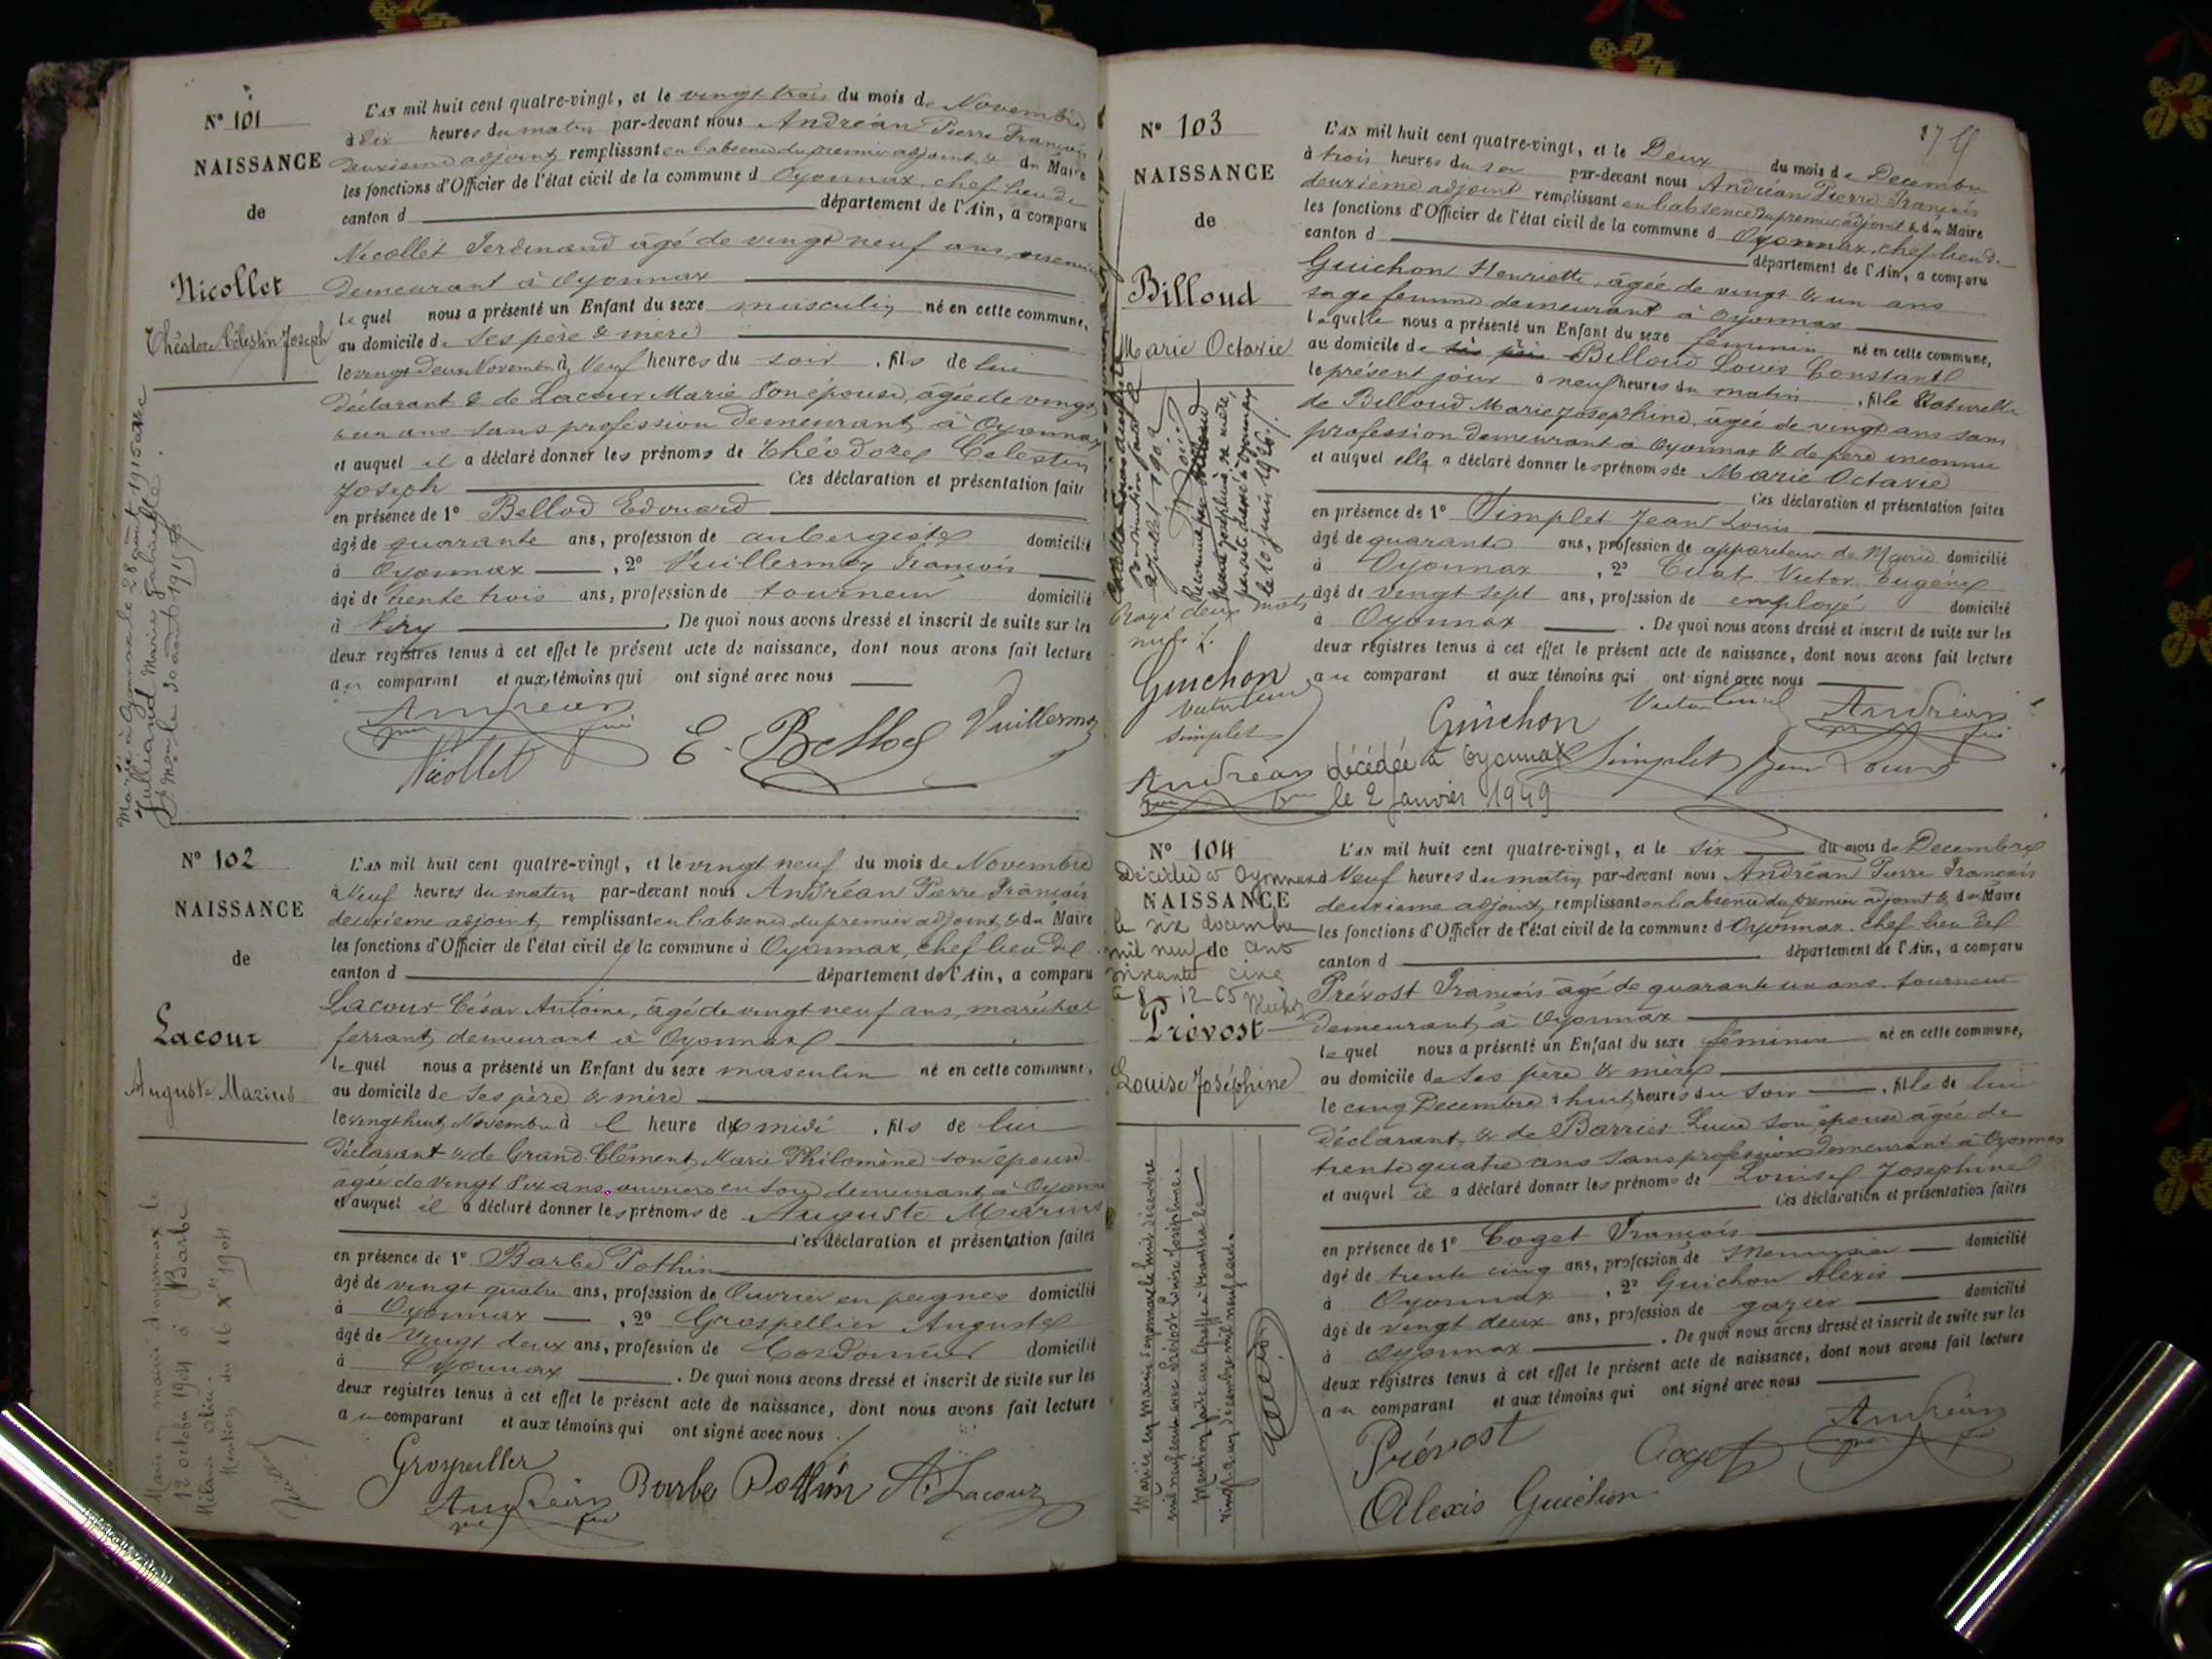 N° 101
NAISSANCE
de
Nicollet
Théodore Célestin Joseph
Marié à Oyonnax le 28 août 1915 avec
Juilland Marie Gabrielle.
L'AN mil huit cent quatre-vingt, et le vingt trois du mois de Novembre
à dix heures du matin par-devant nous Andréan Pierre François
deuxième adjoint, remplissant en l'absence du premier adjoint & du Maire
les fonctions d'Officier de l'état civil de la commune d Oyonnax, chef lieu de
canton d département de l'Ain, a comparu
Nicollet Ferdinand âgé de vingt neuf ans,
demeurant à Oyonnax
lequel nous a présenté un Enfant du sexe masculin né en cette commune,
au domicile de ses père & mère
le vingt deux Novembre à Neuf heures du soir , fils de lui
déclarant & de Lacour Marie son épouse, âgée de vingt
un ans sans profession demeurant à Oyonnax
et auquel il a déclaré donner les prénoms de Théodore Célestin
Joseph Ces déclaration et présentation faite
en présence de 1° Bellod Edouard
âgé de quarante ans, profession de aubergiste domicilié
à Oyonnax , 2° Vuillermoz François
âgé de trente trois ans, profession de tourneur domicilié
à Viry . De quoi nous avons dressé et inscrit de suite sur les
deux registres tenus à cet effet le présent acte de naissance, dont nous avons fait lecture
au comparant et aux témoins qui ont signé avec nous
Andréan
Nicollet E. Bellod Vuillermoz
N° 102
NAISSANCE
de
Lacour
Auguste Marius
Marié en mairie d'Oyonnax le
12 octobre 1904 à Barbe
Mention du 16 Xbre 1904
L'AN mil huit cent quatre-vingt, et le vingt neuf du mois de Novembre
à Neuf heures du matin par-devant nous Andréan Pierre François
deuxième adjoint, remplissant en l'absence du premier adjoint & du Maire
les fonctions d'Officier de l'état civil de la commune d Oyonnax, chef lieu de
canton d département de l'Ain, a comparu
Lacour César Antoine, âgé de vingt neuf ans, maréchal
ferrant, demeurant à Oyonnax
lequel nous a présenté un Enfant du sexe masculin né en cette commune,
au domicile de ses père & mère
le vingt huit Novembre à heure midi , fils de lui
déclarant & de Grand-Clément Marie Philomène son épouse
âgée de vingt six ans, demeurant à Oyonnax
et auquel il a déclaré donner les prénoms de Auguste Marius
Ces déclaration et présentation faites
en présence de 1° Barbe Pothin
âgé de vingt quatre ans, profession de Ouvrier en peignes domicilié
à Oyonnax , 2° Grospellier Auguste
âgé de vingt deux ans, profession de Cordonnier domicilié
à Oyonnax . De quoi nous avons dressé et inscrit de suite sur les
deux registres tenus à cet effet le présent acte de naissance, dont nous avons fait lecture
au comparant et aux témoins qui ont signé avec nous
Grospellier
Andréan Barbe Pothin A. Lacour
N° 103
NAISSANCE
de
Billoud
Marie Octavie
le 10 juin 1926
Rayé deux mots
nuls
Guichon
Simplet
Andréan
L'AN mil huit cent quatre-vingt, et le Deux du mois de Décembre
à trois heures du soir par-devant nous Andréan Pierre François
deuxième adjoint remplissant en l'absence du premier adjoint & du Maire
les fonctions d'Officier de l'état civil de la commune d Oyonnax, chef lieu de
canton d département de l'Ain, a comparu
Guichon Henriette, âgée de vingt & un ans
sage femme demeurant à Oyonnax
laquelle nous a présenté un Enfant du sexe féminin né en cette commune,
au domicile de Billoud Louis Constant
le présent jour à neuf heures du matin , fille Naturelle
de Billoud Marie Joséphine, âgée de vingt ans sans
profession demeurant à Oyonnax & de père inconnu
et auquel elle a déclaré donner les prénoms de Marie Octavie
Ces déclaration et présentation faites
en présence de 1° Simplet Jean Louis
âgé de quarante ans, profession de appariteur de Mairie domicilié
à Oyonnax , 2° Cuat Victor Eugène
âgé de vingt sept ans, profession de employé domicilié
à Oyonnax . De quoi nous avons dressé et inscrit de suite sur les
deux registres tenus à cet effet le présent acte de naissance, dont nous avons fait lecture
au comparant et aux témoins qui ont signé avec nous
Guichon Andréan
Simplet Jean Louis
décédée à Oyonnax
le 2 janvier 1949
N° 104
Décédée à Oyonnax
NAISSANCE
le six décembre
mil neuf cent
de
soixante cinq
Prévost
Louise Joséphine
L'AN mil huit cent quatre-vingt, et le six du mois de Décembre
à Neuf heures du matin par-devant nous Andréan Pierre François
deuxième adjoint, remplissant en l'absence du premier adjoint & du Maire
les fonctions d'Officier de l'état civil de la commune d Oyonnax, chef lieu de
canton d département de l'Ain, a comparu
Prévost François âgé de quarante un ans, tourneur
demeurant à Oyonnax
lequel nous a présenté un Enfant du sexe féminin né en cette commune,
au domicile de ses père & mère
le cinq Décembre à huit heures du soir , fille de lui
déclarant, & de Barrier son épouse âgée de
trente quatre ans sans profession demeurant à Oyonnax
et auquel il a déclaré donner les prénoms de Louise Joséphine
Ces déclaration et présentation faites
en présence de 1° Coget François
âgé de trente cinq ans, profession de Menuisier domicilié
à Oyonnax , 2° Guichon Alexis
âgé de vingt deux ans, profession de gazier domicilié
à Oyonnax . De quoi nous avons dressé et inscrit de suite sur les
deux registres tenus à cet effet le présent acte de naissance, dont nous avons fait lecture
au comparant et aux témoins qui ont signé avec nous
Prévost Coget Andréan
Alexis Guichon